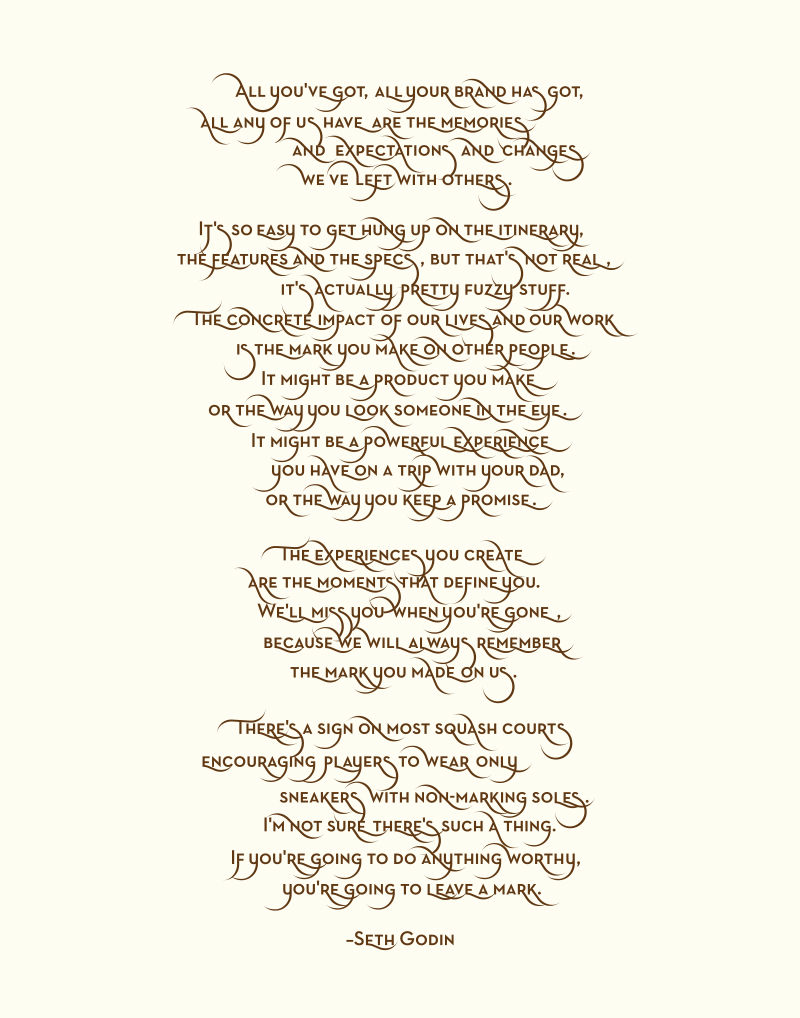 All you've got, all your brand has got,
all any of us have are the memories
and expectations and changes
we've left with others.
It's so easy to get hung up on the itinerary,
the features and the specs, but that's not real,
it's actually pretty fuzzy stuff.
The concrete impact of our lives and our work
is the mark you make on other people.
It might be a product you make
or the way you look someone in the eye.
It might be a powerful experience
you have on a trip with your dad,
or the way you keep a promise.
The experiences you create
are the moments that define you.
We'll miss you when you're gone,
because we will always remember
the mark you made on us.
There's a sign on most squash courts
encouraging players to wear only
sneakers with non-marking soles.
I'm not sure there's such a thing.
If you're going to do anything worthy,
you're going to leave a mark.
–Seth Godin